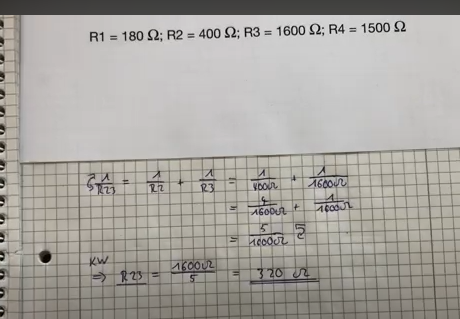 R1 = 180 Ω; R2 = 400 Ω; R3 = 1600 Ω; R4 = 1500 Ω
1/R23 = 1/R2 + 1/R3 = 1/400Ω + 1/1600Ω
= 4/1600Ω + 1/1600Ω
= 5/1600Ω
KW
⇒ R23 = 1600Ω/5 = 320 Ω